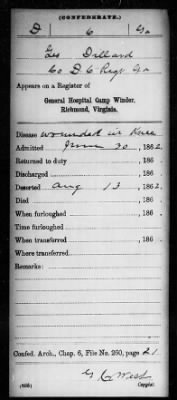 (CONFEDERATE.)
D 6 Ga
Geo Dillard
Co D 6 Regt Ga
Appears on a Register of
General Hospital Camp Winder,
Richmond, Virginia.
Disease wounded in Knee
Admitted June 30, 1862.
Returned to duty , 186 .
Discharged , 186 .
Deserted Aug 13, 1862.
Died , 186 .
When furloughed , 186 .
Time furloughed
When transferred , 186 .
Where transferred
Remarks:
Confed. Arch., Chap. 6, File No. 250, page 21
G C West
(635) Copyist.